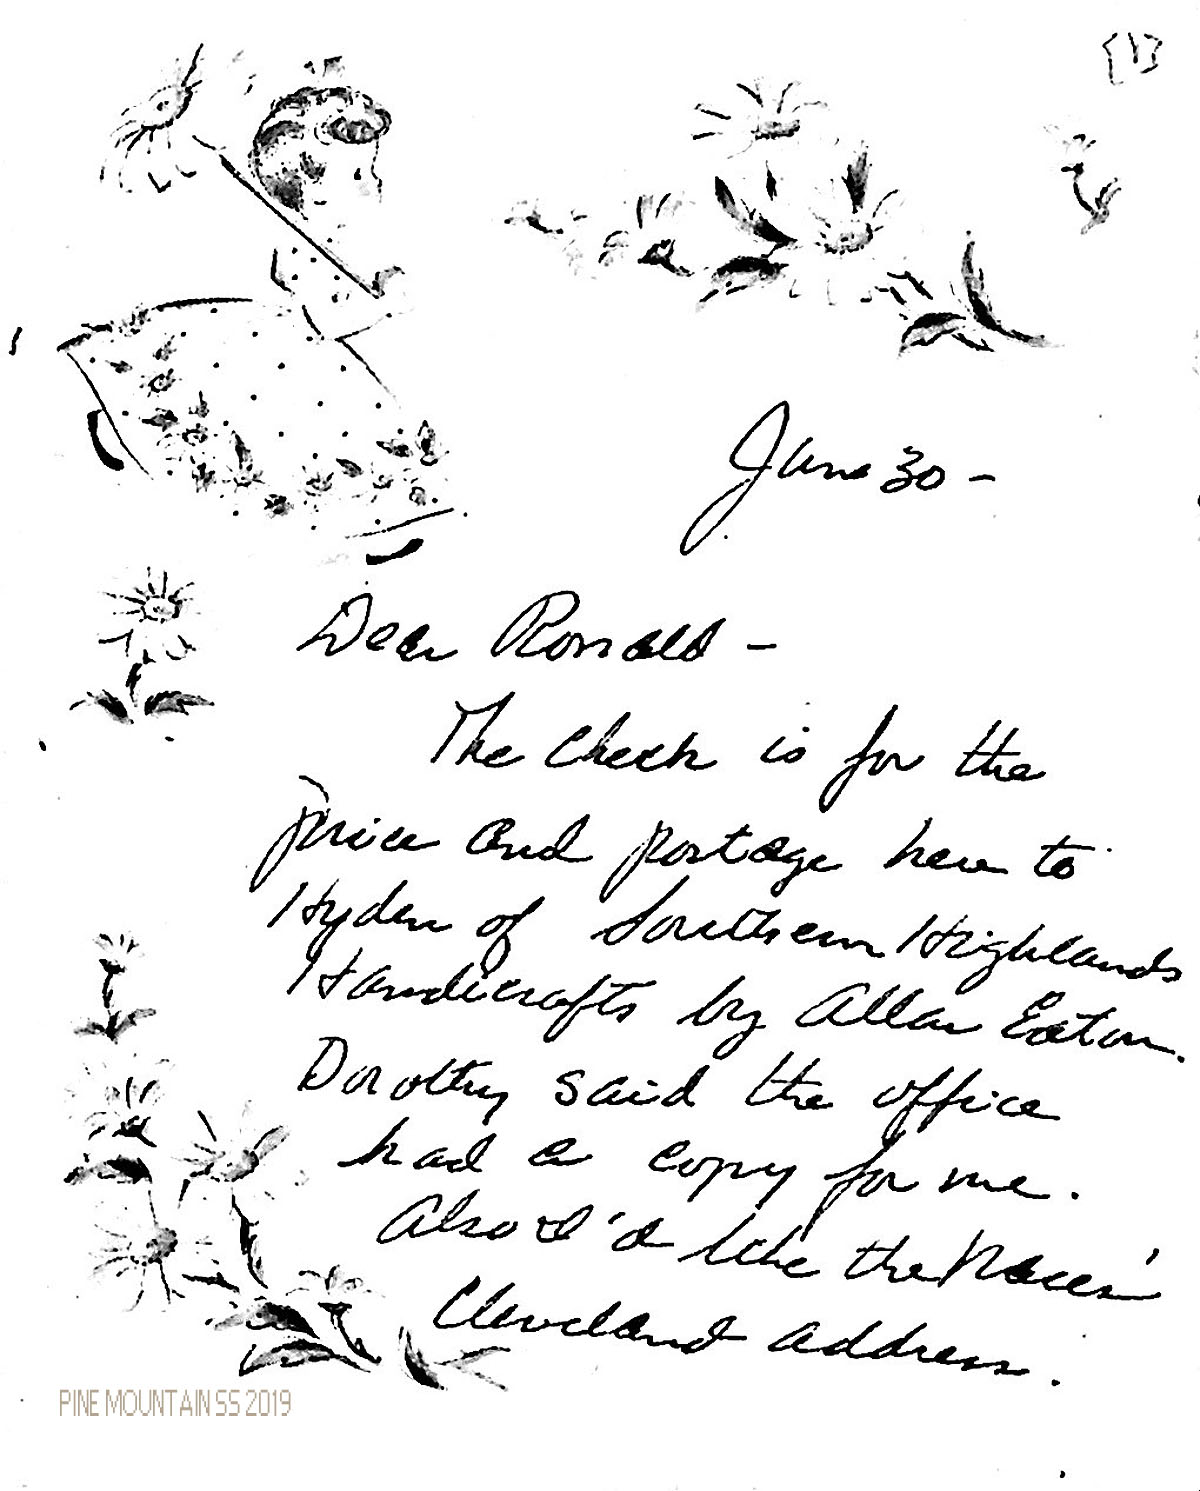 [1]
June 30 -
Dear Ronald -
The check is for the
price and postage here to
Hyden of Southern Highlands
Handicrafts by Allan Eaton.
Dorothy said the office
had a copy for me.
Also I'd like the
Cleveland address.
PINE MOUNTAIN SS 2019